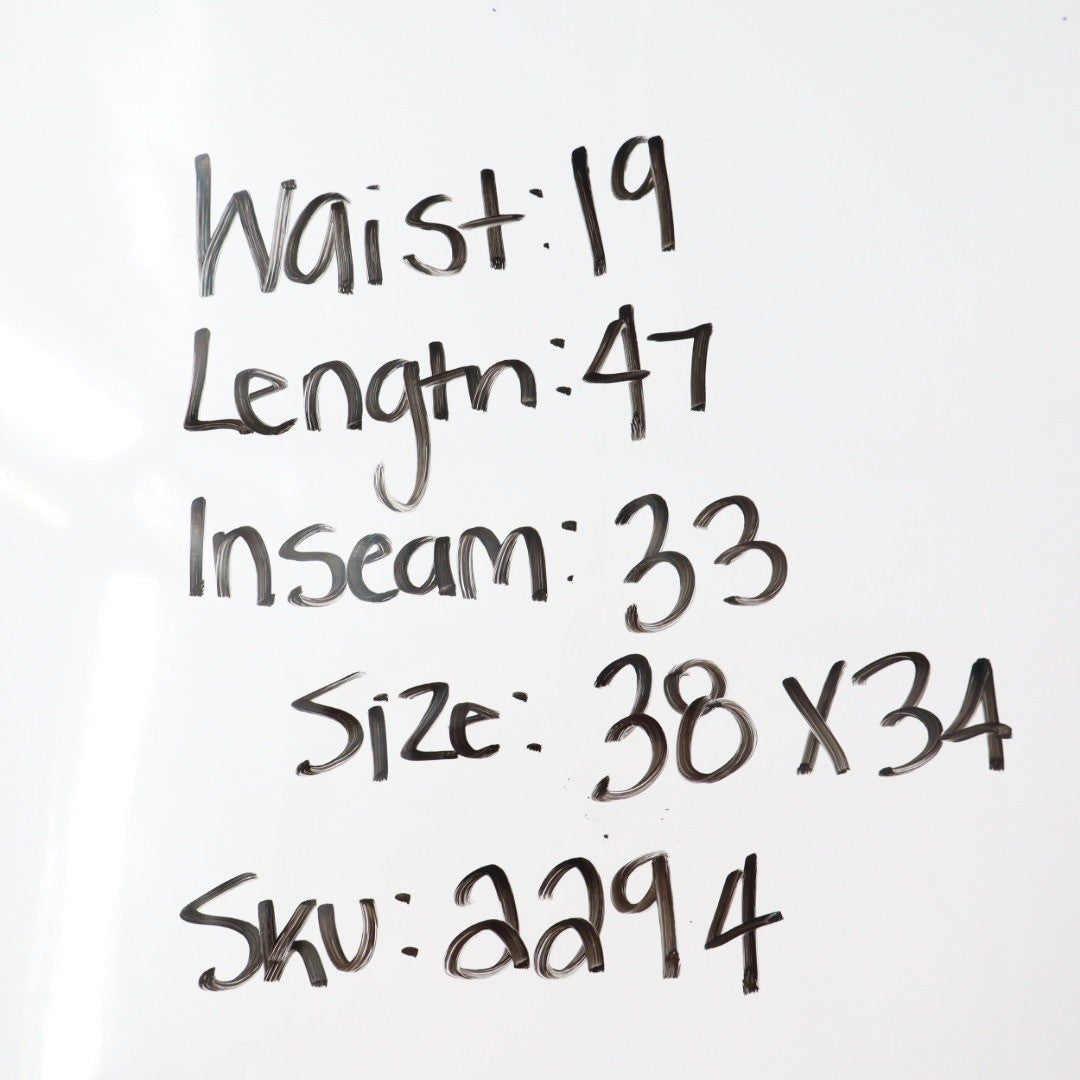 Waist: 19
Length: 47
Inseam: 33
Size: 38 X 34
SKU: 2294